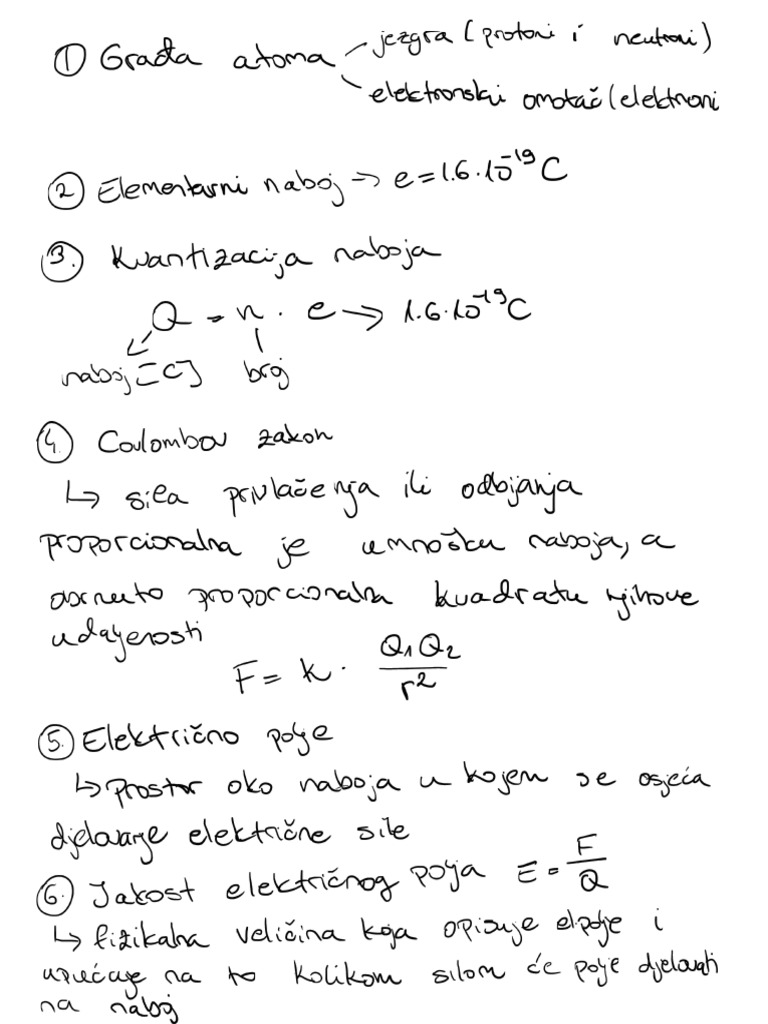 ① Građa atoma
jezgra (protoni i neutroni)
elektronski omotač (elektroni
② Elementarni naboj → e = 1.6 · 10⁻¹⁹ C
③. Kvantizacija naboja
Q = n · e → 1.6 · 10⁻¹⁹ C
naboj [C] broj
④. Coulombov zakon
↳ sila privlačenja ili odbijanja
proporcionalna je umnošku naboja, a
obrnuto proporcionalna kvadratu njihove
udaljenosti
F = k · Q₁Q₂ / r²
⑤. Električno polje
↳ prostor oko naboja u kojem se osjeća
djelovanje električne sile
⑥. Jakost električnog polja E = F / Q
↳ fizikalna veličina koja opisuje el. polje i
upućuje na to kolikom silom će polje djelovati
na naboj